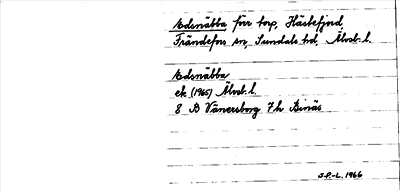 Edsnäbba förr torp, Hästefjord,
Frändefors sn, Sundals hd, Älvsb. l.
Edsnäbba
ek (1965) Älvsb. l.
8 B Vänersborg 7h Binäs
S.P.-L. 1966